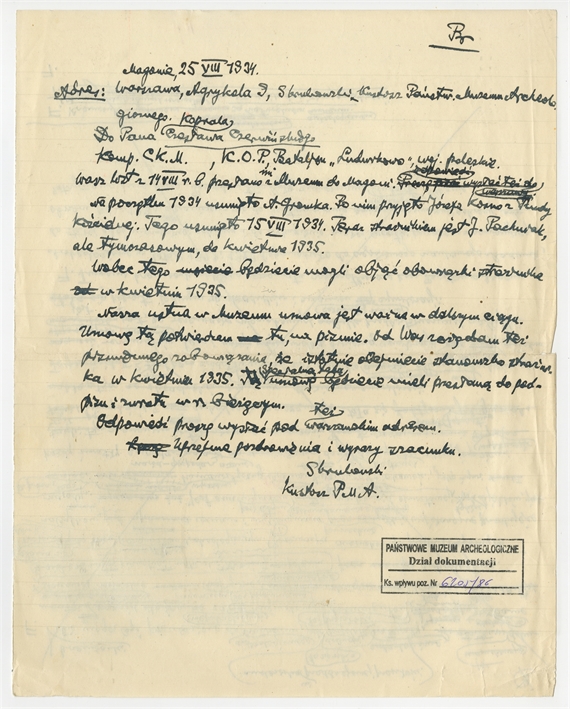 Br
Magonie, 25 VIII 1934.
Adres: Warszawa, Agrykola 9, S. Krukowski, Kustosz Państw. Muzeum Archeolo-
gicznego. Kaprala
Do Pana Czesława Czerwińskiego
Komp. C.K.M., K.O.P., Bataljon "Ludwikowo", woj. poleskie.
Wasz list z 14 VIII r. b. przesłano mi z Muzeum do Magonie.
Na początku 1934 usunięto A. Gromka. Po nim przyjęto Józefa z Rudy
Kościelnej. Tego usunięto 15 VIII 1934. Teraz strażnikiem jest J. Pachniak,
ale tymczasowym, do kwietnia 1935.
Wobec tego będziecie mogli objąć obowiązki strażnika
w kwietniu 1935.
Nasza ustna w Muzeum umowa jest ważna w dalszym ciągu.
Umowę tę potwierdzam tu, na piśmie. Od Was zażądam też
zobowiązania, że istotnie obejmiecie stanowisko straźni-
ka w kwietniu 1935. umowę będziecie mieli przesłaną do pod-
pisu i zwrotu w r. bieżącym.
też
Odpowiedź proszę wysłać pod warszawskim adresem.
Uprzejme pozdrowienia i wyrazy szacunku.
S Krukowski
Kustosz P.M.A.
PAŃSTWOWE MUZEUM ARCHEOLOGICZNE
Dział dokumentacji
Ks. wpływu poz. Nr